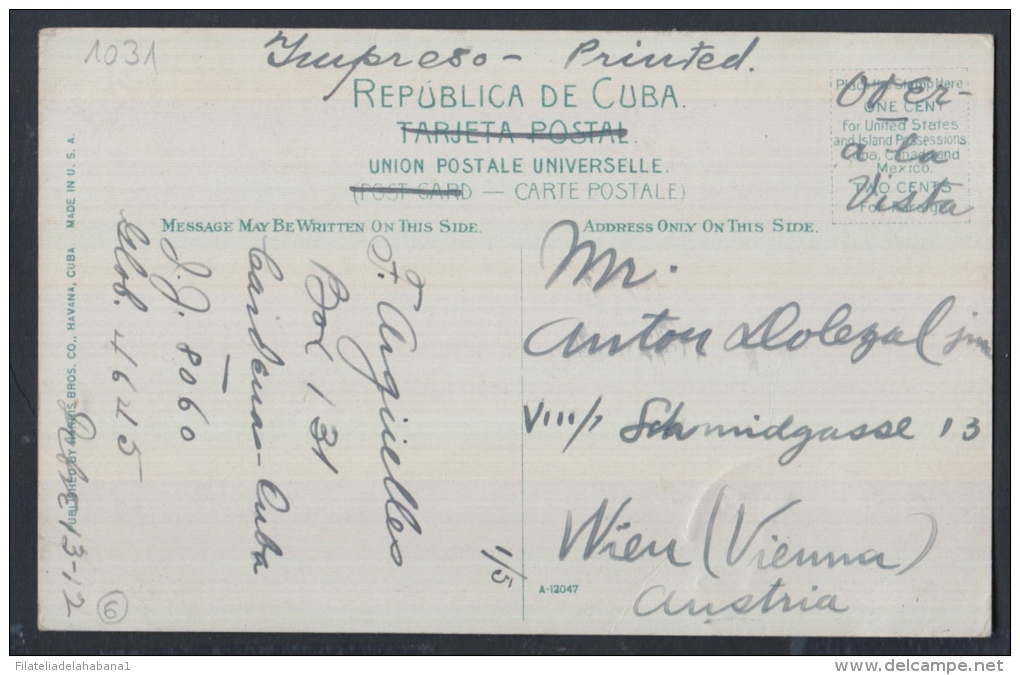 1031
Impreso - Printed.
REPÚBLICA DE CUBA.
TARJETA POSTAL.
UNION POSTALE UNIVERSELLE.
(POST CARD — CARTE POSTALE)
Place the Stamp Here
ONE CENT
For United States
and Island Possessions,
Cuba, Canada and
Mexico.
TWO CENTS
For Foreign
a la
Vista
MESSAGE MAY BE WRITTEN ON THIS SIDE.
ADDRESS ONLY ON THIS SIDE.
F. Argüelles
Box 131
Cardenas - Cuba
J.J. 8060
Glob. 4645
13-12
1/5
6
PUBLISHED BY HARRIS BROS. CO., HAVANA, CUBA. MADE IN U. S. A.
Mr.
Anton Dolezal jun
VIII/1 Schmidgasse 13
Wien (Vienna)
Austria
A-12047
Filateliadelahabana1
delcampe.net